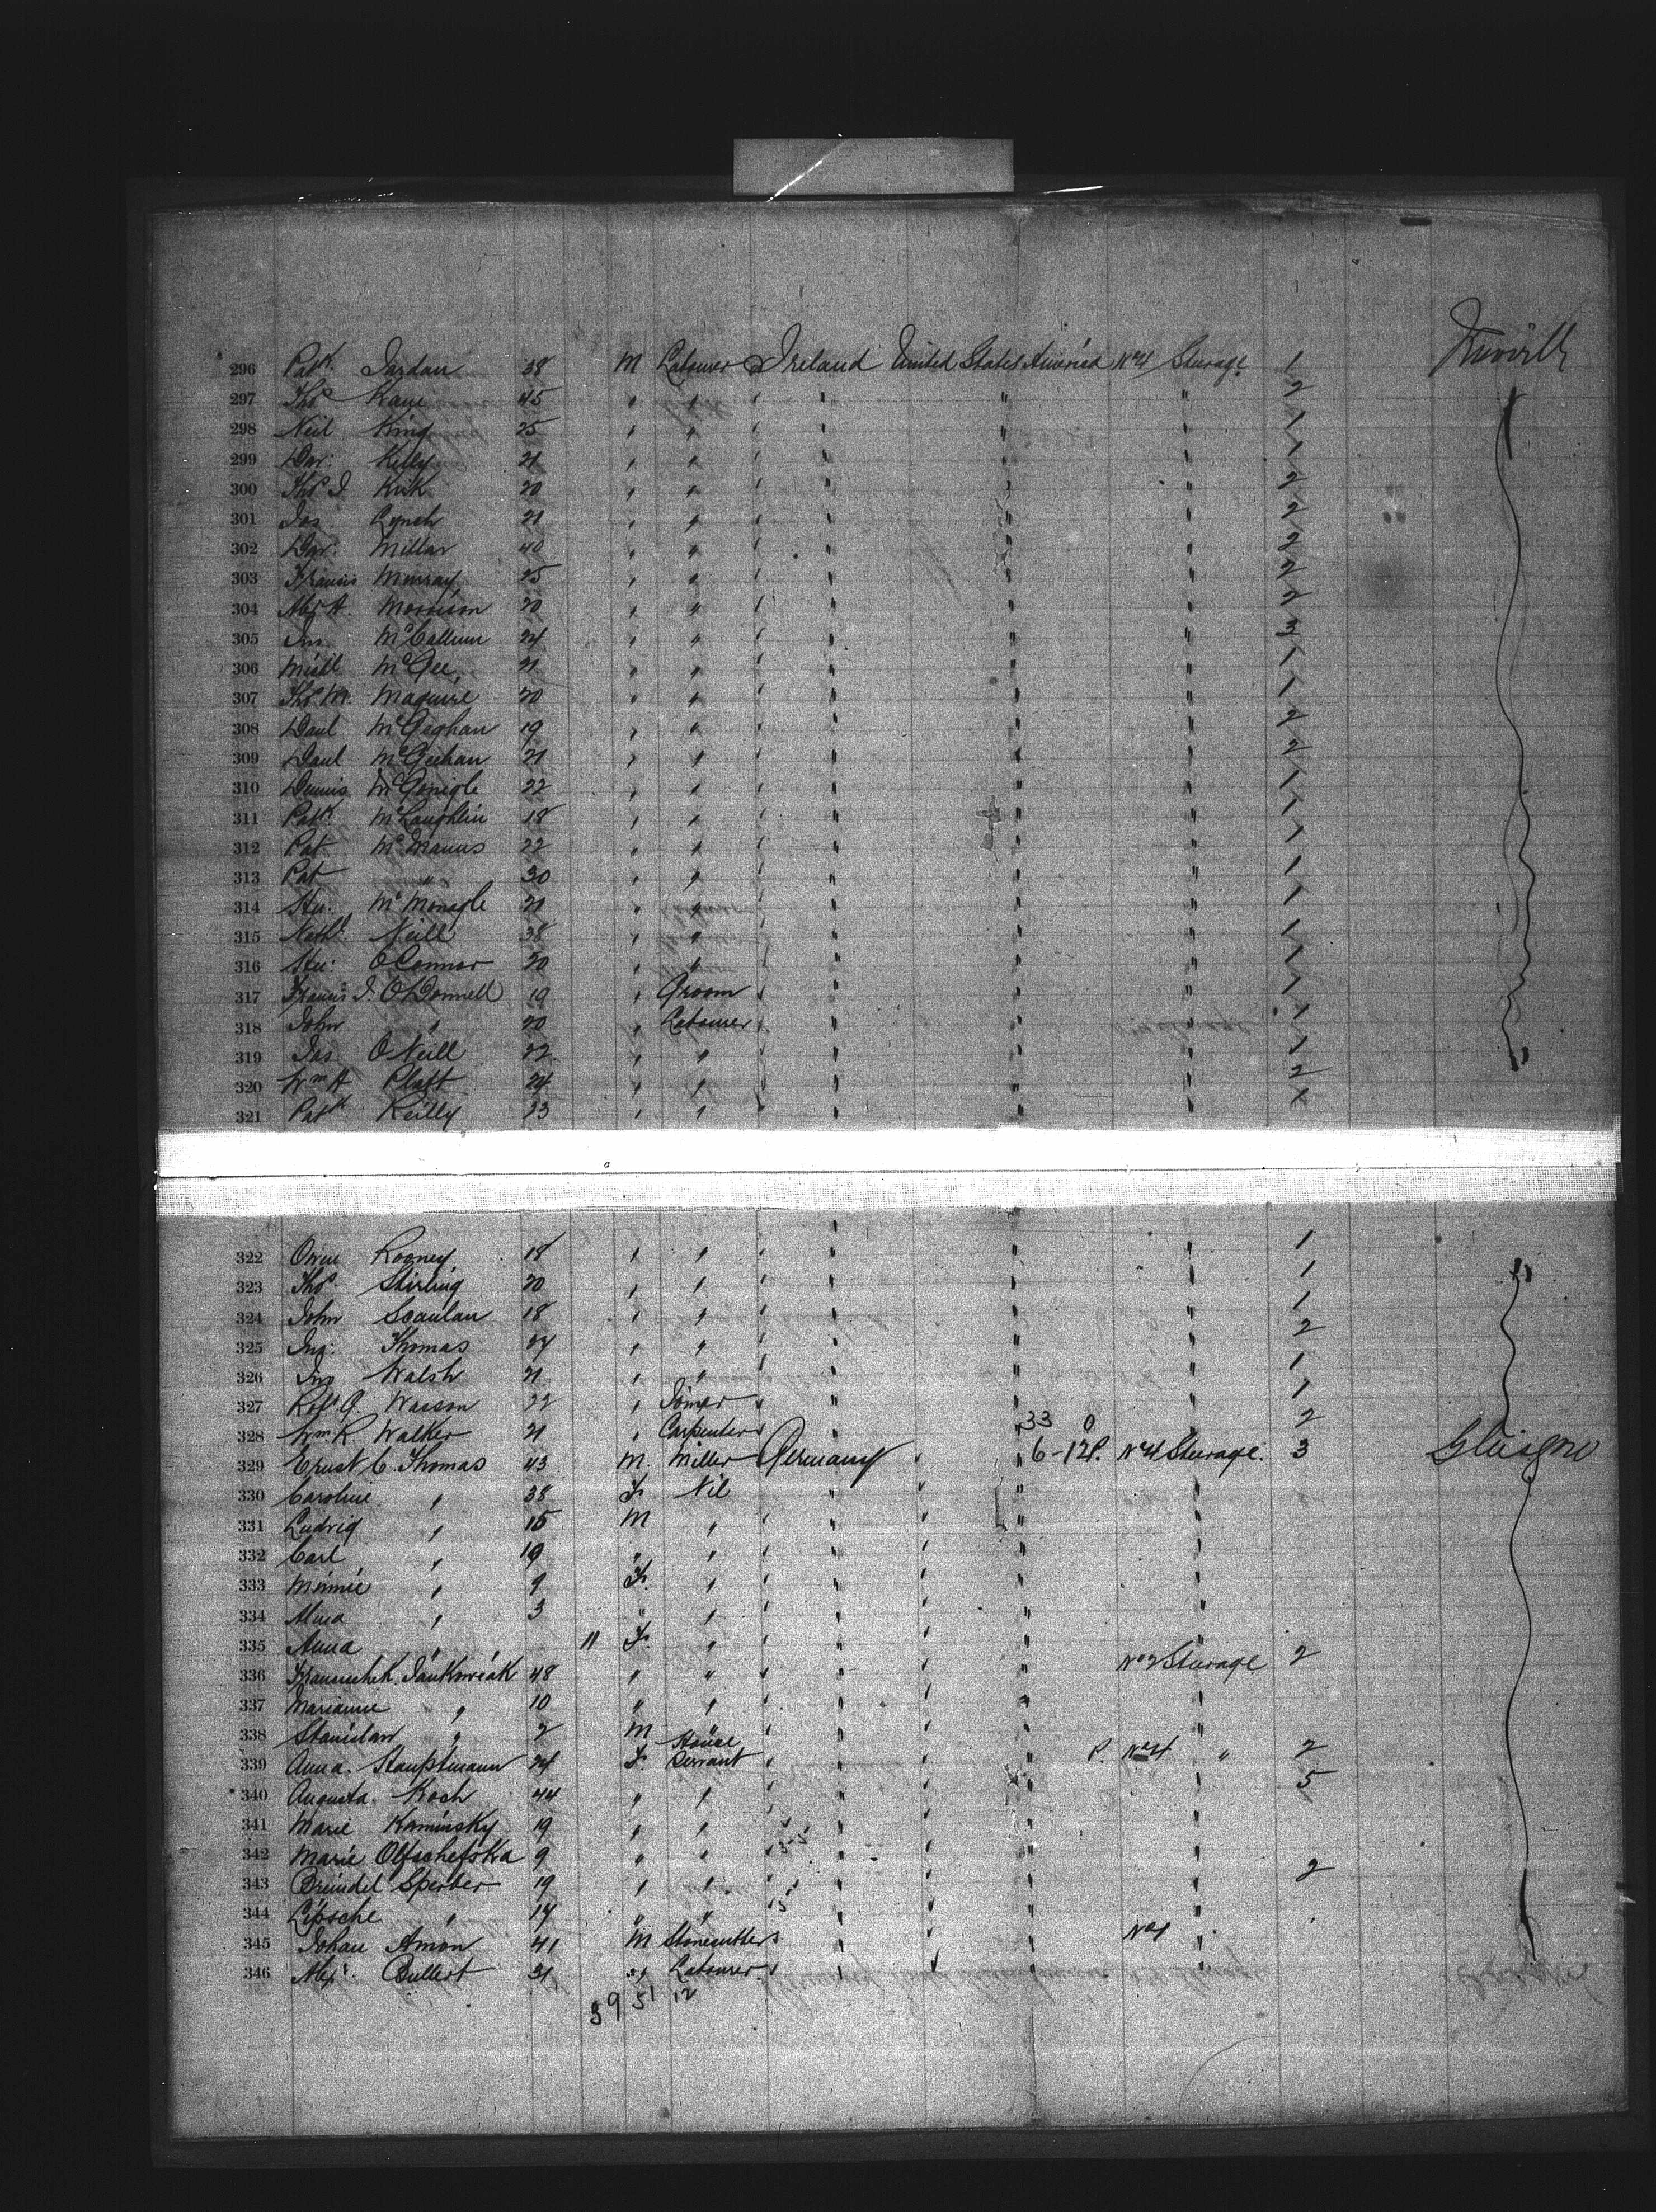 296 Patk. Jordan 38 M Labourer Ireland United States America No 4 Sterage 1
297 Thos Kane 45 " " " " " " 2
298 Neil King 25 " " " " " " 1
299 Dan: Kelly 21 " " " " " " 1
300 Thos J. Kirk 20 " " " " " " 2
301 Jas Lynch 21 " " " " " " 2
302 Dan: Millar 40 " " " " " " 2
303 Francis Murray 25 " " " " " " 2
304 Alexr A. Morrison 20 " " " " " " 2
305 Jno. McCallum 24 " " " " " " 3
306 McGee 21 " " " " " " 1
307 Thos M. Maguire 20 " " " " " " 1
308 Danl McGaghan 19 " " " " " " 2
309 Danl McGeehan 21 " " " " " " 2
310 Dennis McGonigle 22 " " " " " " 1
311 Patk McLaughlin 18 " " " " " " 1
312 Pat McManus 22 " " " " " " 1
313 Pat " 30 " " " " " " 1
314 McMonagle 21 " " " " " " 1
315 Nathl. Neill 38 " " " " " " 1
316 O'Connor 20 " " " " " " 1
317 Francis J. O'Donnell 19 " Groom " " " " 1
318 John " 20 " Labourer " " " " 1
319 Jas O'Neill 22 " " " " " " 1
320 Wm A Platt 24 " " " " " " 2
321 Patk Reilly 23 " " " " " " 1
322 Owen Rooney 18 " " " " " " 1
323 Thos. Stirling 20 " " " " " " 1
324 John Scanlan 18 " " " " " " 1
325 Thomas " " " " " " 2
326 Jno Walsh 21 " " " " " 1
327 Robt. G. Wasson 22 " Joiner " " " 1
328 Wm R Walker 21 " Carpenter " 33 0 2
329 Ernst C. Thomas 43 M. Miller Germany " 6-12P. No 4 Sterage. 3 Glasgow
330 Caroline " 38 F. Nil " " "
331 Ludwig " 15 M " " " "
332 Carl " 19 " " " " " "
333 Minnie " 9 F. " " " " "
334 Alma " 3 " " " " " "
335 Anna " 11 F. " " " " "
336 Jankowiak 48 " " " " " No 2 Sterage 2
337 Marianne " 10 " " " " " "
338 Stanislaw " 2 M " " " " "
339 Anna. Hauptmann 24 F. House Servant " " " P. No 4 " 2
340 Augusta. Koch 44 " " " " " " 5
341 Marie Kaminsky 19 " " " " " "
342 Marie Olfschefska 9 " " " " " "
343 Breindel Sperber 19 " " " " " " 2
344 Lipsche " 17 " " " " " "
345 Johan Amon 41 M Stonecutter " " " No 4 "
346 Alexr. Bullert 31 " Labourer " " " "
39 51 12